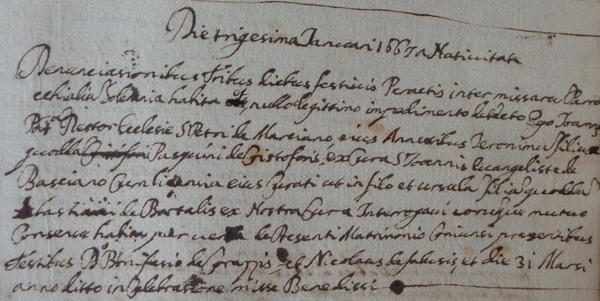 Die trigesima Januari 1667 a Nativitate
Denunciasionibus tribus diebus festivis Peractis inter missaru Parro
cchialia solemnia habita et nullo legittimo impedimento Ego Joannes
Rettor Ecclesie S Petri de Marciano eius Annexibus Jeronimu filiu
quodla Pasquini de Cristoforis ex Cura S Joannis Euangeliste de
Basciano Cum licensia eius Curati ut in filo et ursula filia quodla
bastiani de Bartalis ex Nostra Cura Interrogavi eorumque mutuo
Consensu habito per verba de Presenti Matrimonio Coniunsi presentibus
testibus Bonifasio de et Nicolaus de et die 31 Marsi
anno ditto in Celebrasione misse Benedissi